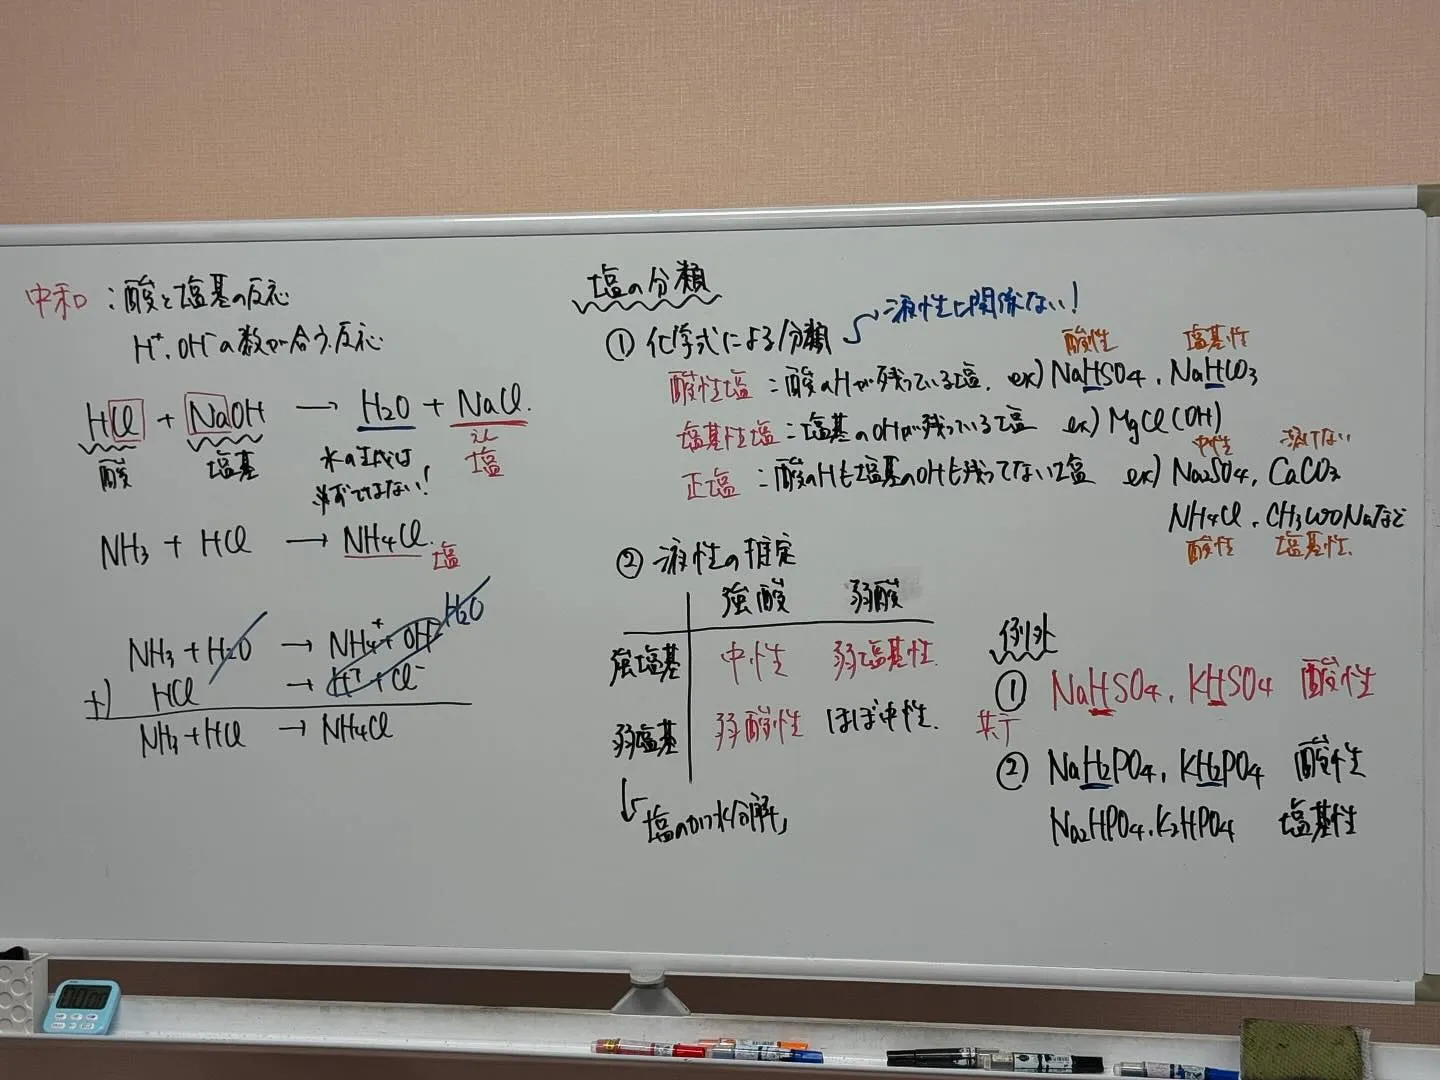 中和：酸と塩基の反応
H⁺, OH⁻の数が合う反応
HCl + NaOH → H₂O + NaCl.
酸
塩基
水の生成は
必ずではない！
塩
NH₃ + HCl → NH₄Cl.
塩
NH₃ + H₂O → NH₄⁺ + OH⁻ H₂O
+) HCl → H⁺ + Cl⁻
NH₃ + HCl → NH₄Cl
塩の分類
① 化学式による分類
液性に関係ない！
酸性 塩基性
酸性塩：酸のHが残っている塩. ex) NaHSO₄, NaHCO₃
塩基性塩：塩基のOHが残っている塩 ex) MgCl(OH)
中性 溶けない
正塩：酸のHも塩基のOHも残ってない塩 ex) Na₂SO₄, CaCO₃
NH₄Cl, CH₃COONaなど
酸性 塩基性.
② 液性の推定
強酸 弱酸
強塩基 中性 弱塩基性
弱塩基 弱酸性 ほぼ中性.
塩の加水分解
例外
① NaHSO₄, KHSO₄ 酸性
② NaH₂PO₄, KH₂PO₄ 酸性
Na₂HPO₄, K₂HPO₄ 塩基性